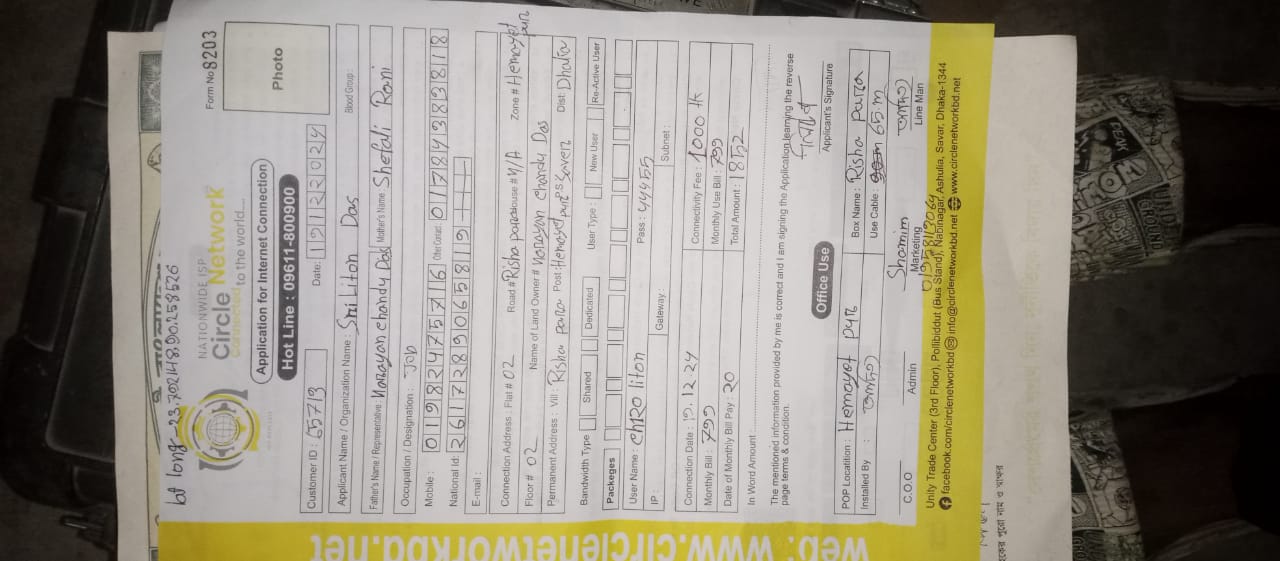 lat long-23.7021148,90.258526
NATIONWIDE ISP
Circle Network
Connected to the world....
Form No 8203
Application for Internet Connection
Hot Line : 09611-800900
Photo
Customer ID : 65713 Date: 19122024
Applicant Name / Organization Name : Sri Liton Das Blood Group :
Father's Name / Representative: Narayan chandy Das Mother's Name : Shefali Rani
Occupation / Designation : Job
Mobile : 01982475716 Other Contact : 01784383818
National Id : 2617289065819
E-mail :
Connection Address : Flat # 02 Road # Risha para House # N/A Zone # Hemayet pur
Floor # 02 Name of Land Owner # Narayan chandy Das
Permanent Address : Vill : Risha para Post : Hemayet pur P.S Saver Dist: Dhaka
Bandwidth Type Shared Dedicated User Type : New User Re-Active User
Packeges
User Name : chr0 liton Pass : 44455
IP : Gateway : Subnet :
Connection Date : 19.12.24 Connectivity Fee : 1000 tk
Monthly Bill : 799 Monthly Use Bill : 799
Date of Monthly Bill Pay : 20 Total Amount : 1852
In Word Amount
The mentioned information provided by me is correct and I am signing the Application learning the reverse
page terms & condition.
Applicant's Signature
Office Use
POP Locatition : Hemayet pur Box Name : Risha para
Installed By : Use Cable : 65 m
Shamim
C.O.O Admin Marketing Line Man
01958113064
Unity Trade Center (3rd Floor), Pollibiddut (Bus Stand), Nabinagar, Ashulia, Savar, Dhaka-1344
facebook.com/circlenetworkbd info@circlenetworkbd.net www.circlenetworkbd.net
web: www.circlenetworkbd.net